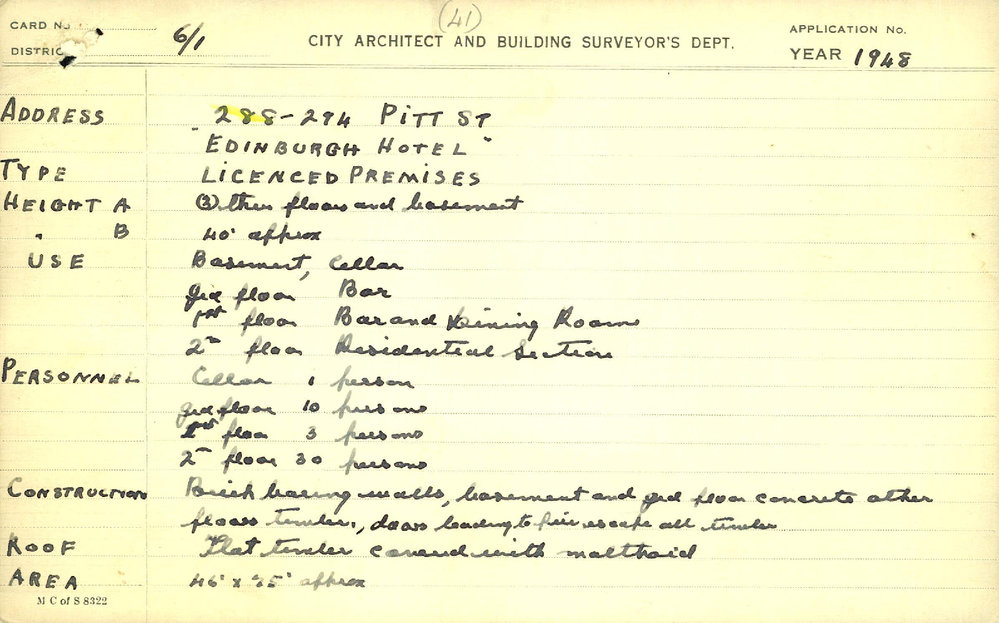 (41)
CARD No. 6/1 CITY ARCHITECT AND BUILDING SURVEYOR'S DEPT. APPLICATION No.
DISTRIC YEAR 1948
ADDRESS 288-294 PITT ST
"EDINBURGH HOTEL"
TYPE LICENCED PREMISES
HEIGHT A (3) three floors and basement
" B 40' approx
USE Basement, Cellar
grd floor Bar
1st floor Bar and Dining Room
2nd floor Residential Section
PERSONNEL Cellar 1 person
grd floor 10 persons
1st floor 3 persons
2nd floor 30 persons
CONSTRUCTION Brick bearing walls, basement and grd floor concrete other
floors timber, doors leading to fire escape all timber
ROOF Flat timber covered with malthoid
AREA 46' x approx
M C of S 8322